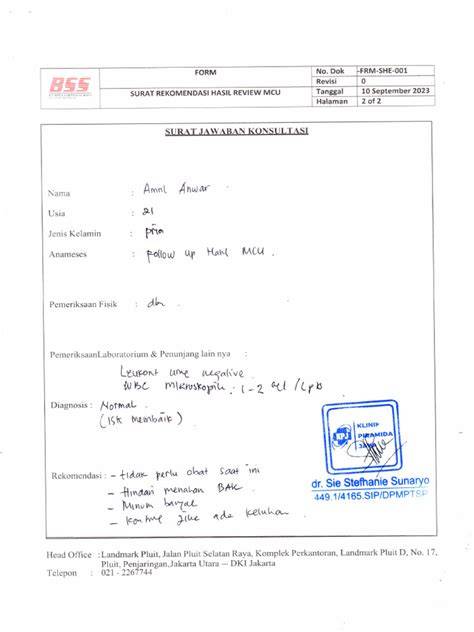 BSS
FORM
SURAT REKOMENDASI HASIL REVIEW MCU
No. Dok -FRM-SHE-001
Revisi 0
Tanggal 10 September 2023
Halaman 2 of 2
SURAT JAWABAN KONSULTASI
Nama : Amril Anwar
Usia : 21
Jenis Kelamin : pria
Anameses : Follow up Hasil MCU
Pemeriksaan Fisik : dbn
PemeriksaanLaboratorium & Penunjang lain nya :
Leukosit urine negative
WBC mikroskopik : 1-2 sel / Lpb
Diagnosis : Normal
(ISK membaik)
Rekomendasi : - tidak perlu obat saat ini
- Hindari menahan BAK
- Minum banyak
- Kontrol jika ada keluhan
KLINIK
PIRAMIDA
dr. Sie Stefhanie Sunaryo
449.1/4165.SIP/DPMPTSP
Head Office : Landmark Pluit, Jalan Pluit Selatan Raya, Komplek Perkantoran, Landmark Pluit D, No. 17,
Pluit, Penjaringan,Jakarta Utara -- DKI Jakarta
Telepon : 021 - 2267744